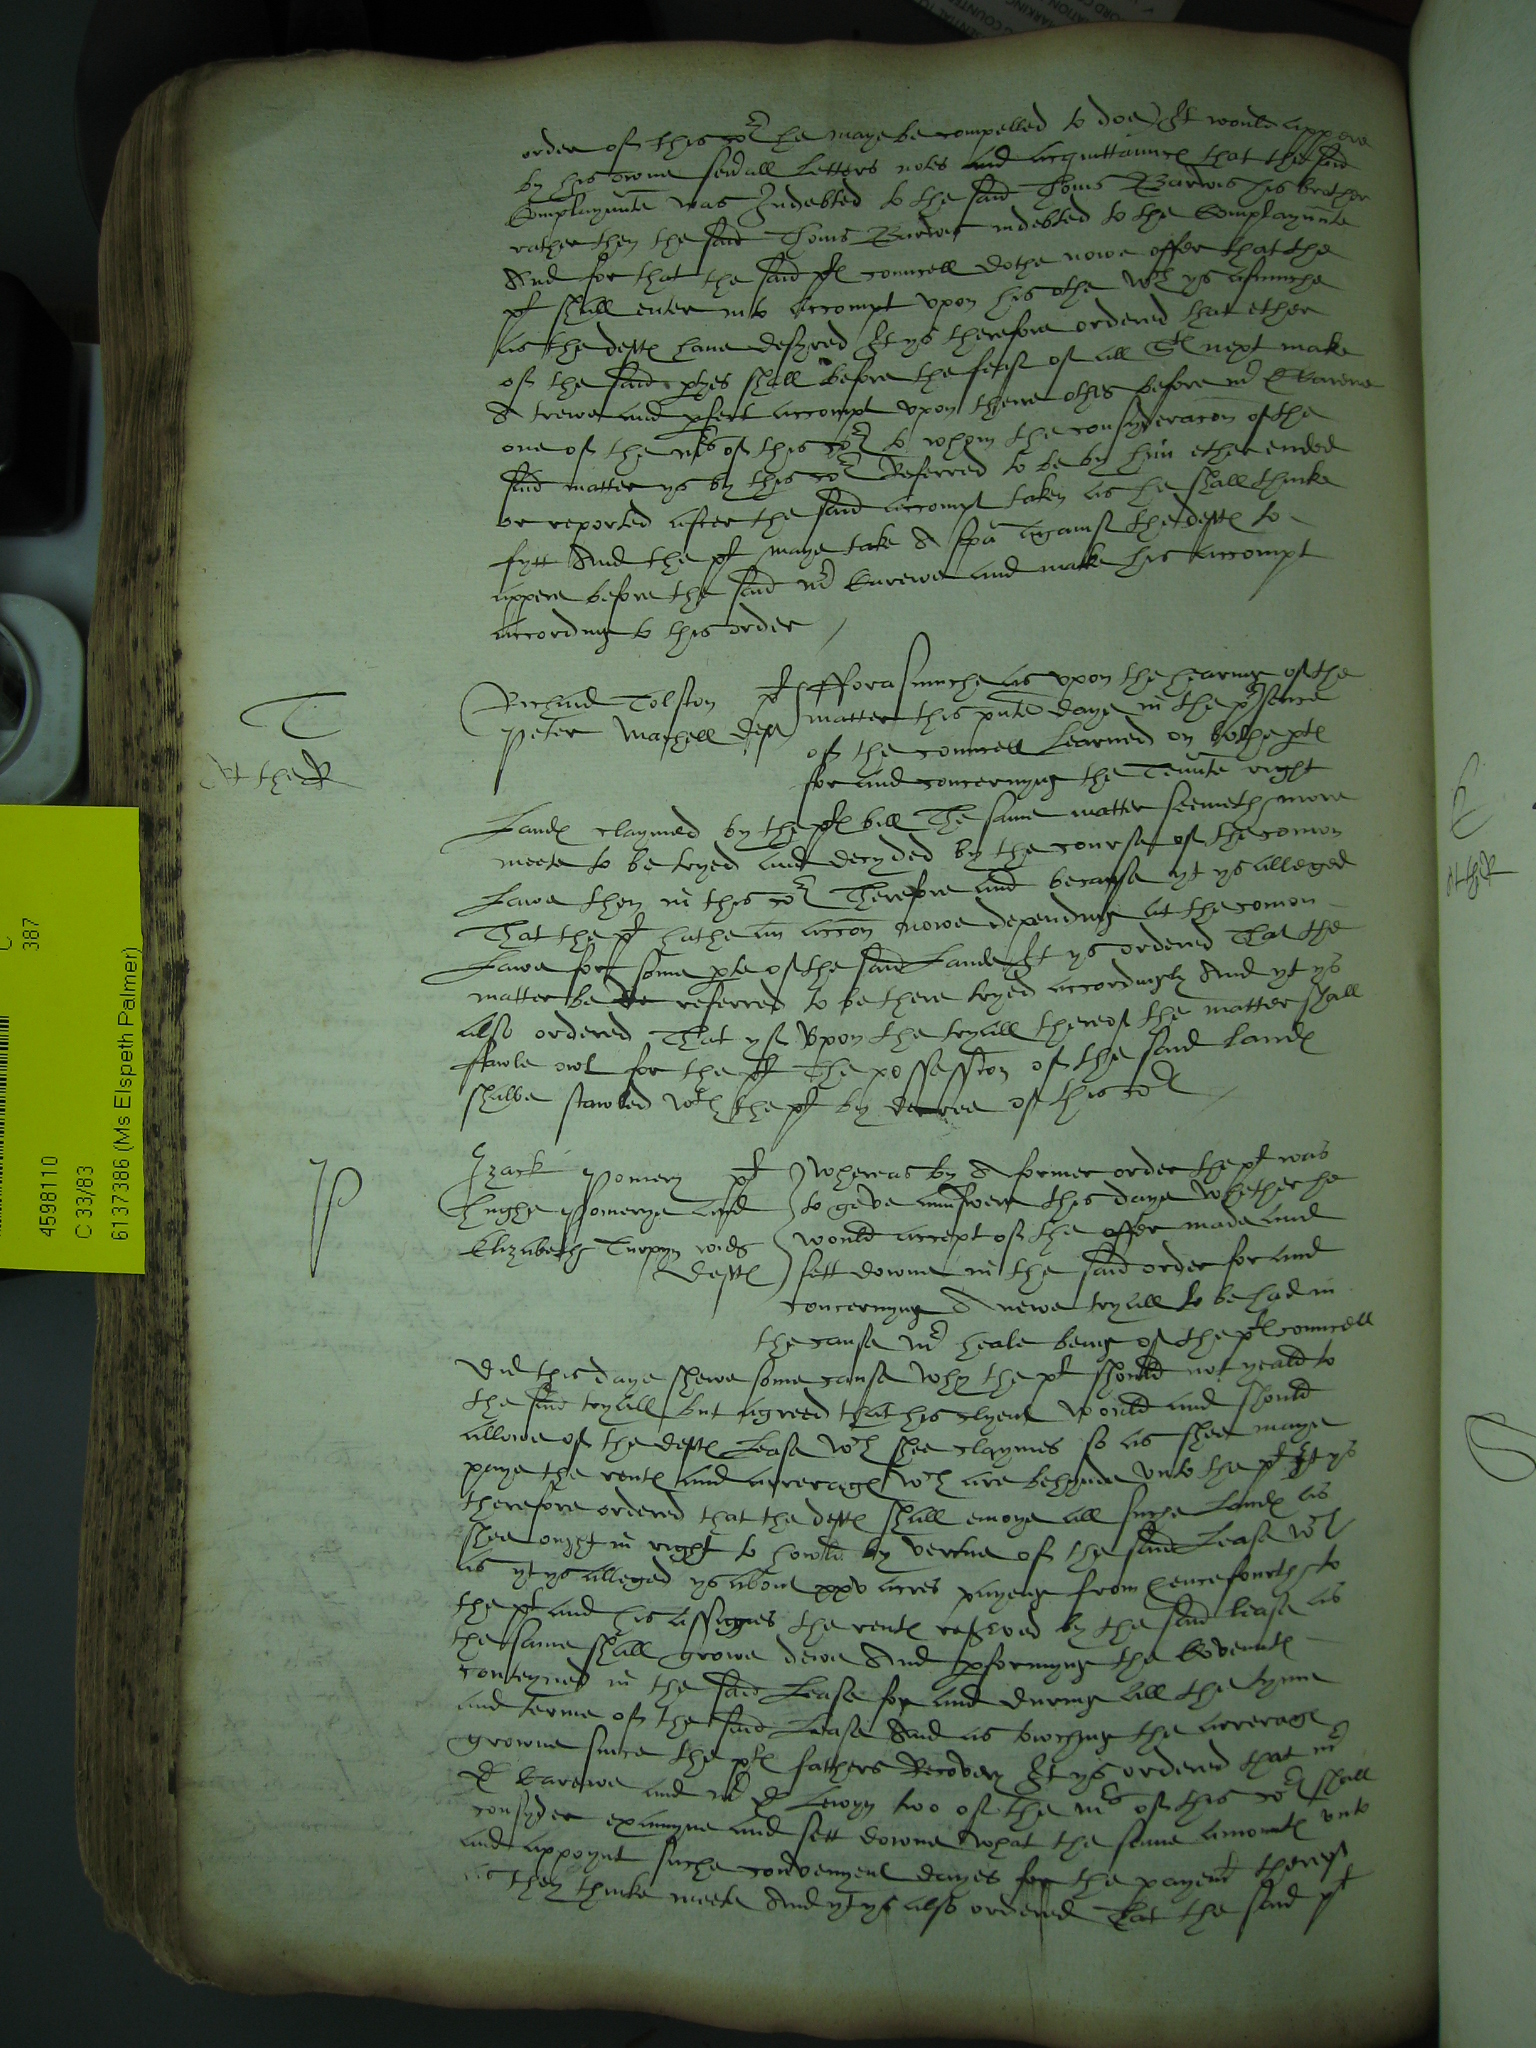 order of this cort he maye be compelled to doe) It would appere
by his owne sevrall letters notes and acquittaunces that the said
Complaynnte was Indebted to the said Thoms Barwis his brother
rather then the said Thoms Barwis indebted to the Complaynnte
And for that the said ples councell dothe nowe offer that the
pl shall enter into accompt vpon his othe wch ys asmuche
as the deftes have desyred It ys therefore ordered that ether
of the said ptyes shall before the feast of all Stes next make
A trewe and pfect accompt vpon there othes before mr Carewe
one of the mrs of this cort to whom the consyderacon of the
said matter ys by this cort Referred to be by him ether ended
or reported after the said accompt taken as he shall thinke
fytt And the pl maye take A spa against the deftes to
appere before the said mr Carewe and make his accompt
according to this order
T
At the R
Richard Tolston pl
Peter Machell deft
fforasmuche as vpon the hearing of the
matter this pnte daye in the psence
of the councell Learned on bothe ptes
for and concernyng the Tennte right
Landes claymed by the ples bill The same matter seemeth more
meete to be tryed and decyded by the course of the comon
Lawe then in this cort Therefore and because yt ys alleged
That the pl hathe an accon nowe depending at the comon
Lawe for some pte of the said Lande It ys ordered That the
matter be referred to be there tryed accordingly And yt ys
also ordered That yf vpon the tryall thereof the matter shall
fawle owt for the pl The possession of the said landes
shalbe stawled wth the pl by decree of this cort
P
Izack Pomery pl
Hughe Pomerye and
Elizabeth Turpyn wid
deftes
whereas by A former order the pl was
to geve aunswere this daye whether he
would accept of the offer made and
sett downe in the said order for and
concernyng A newe tryall to be had in
the cause mr heale being of the ples councell
did this daye shewe some cause why the pl should not yeald to
the said tryall but agreed that his clyent would and should
allowe of the deftes Lease wch shee claymes so as shee maye
paye the rentes and arrerages wch are behynde vnto the pl It ys
therefore ordered that the deftes shall enioye all suche landes as
shee ought in right to howld by vertue of the said Lease wch
as yt ys alleged ys about xxv acres payeng from hencefourth to
the pl and his assignes the rentes reserved by the said lease as
the same shall growe dewe And pformyng the Covenntes
conteyned in the said Lease for and during all the tyme
and terme of the said Lease And as towching the arrerages
growne since the ples fathers Recovery It ys ordered that mr
D Carewe and mr D Lewyn two of the mrs of this cort shall
consyder examyne and sett downe what the same amountes vnto
and appoynt suche convenyent dayes for the payemt thereof
as they thinke meete And yt ys also ordered That the said pl
4598110
C 33/83
6137386 (Ms Elspeth Palmer)
C
387
At the R